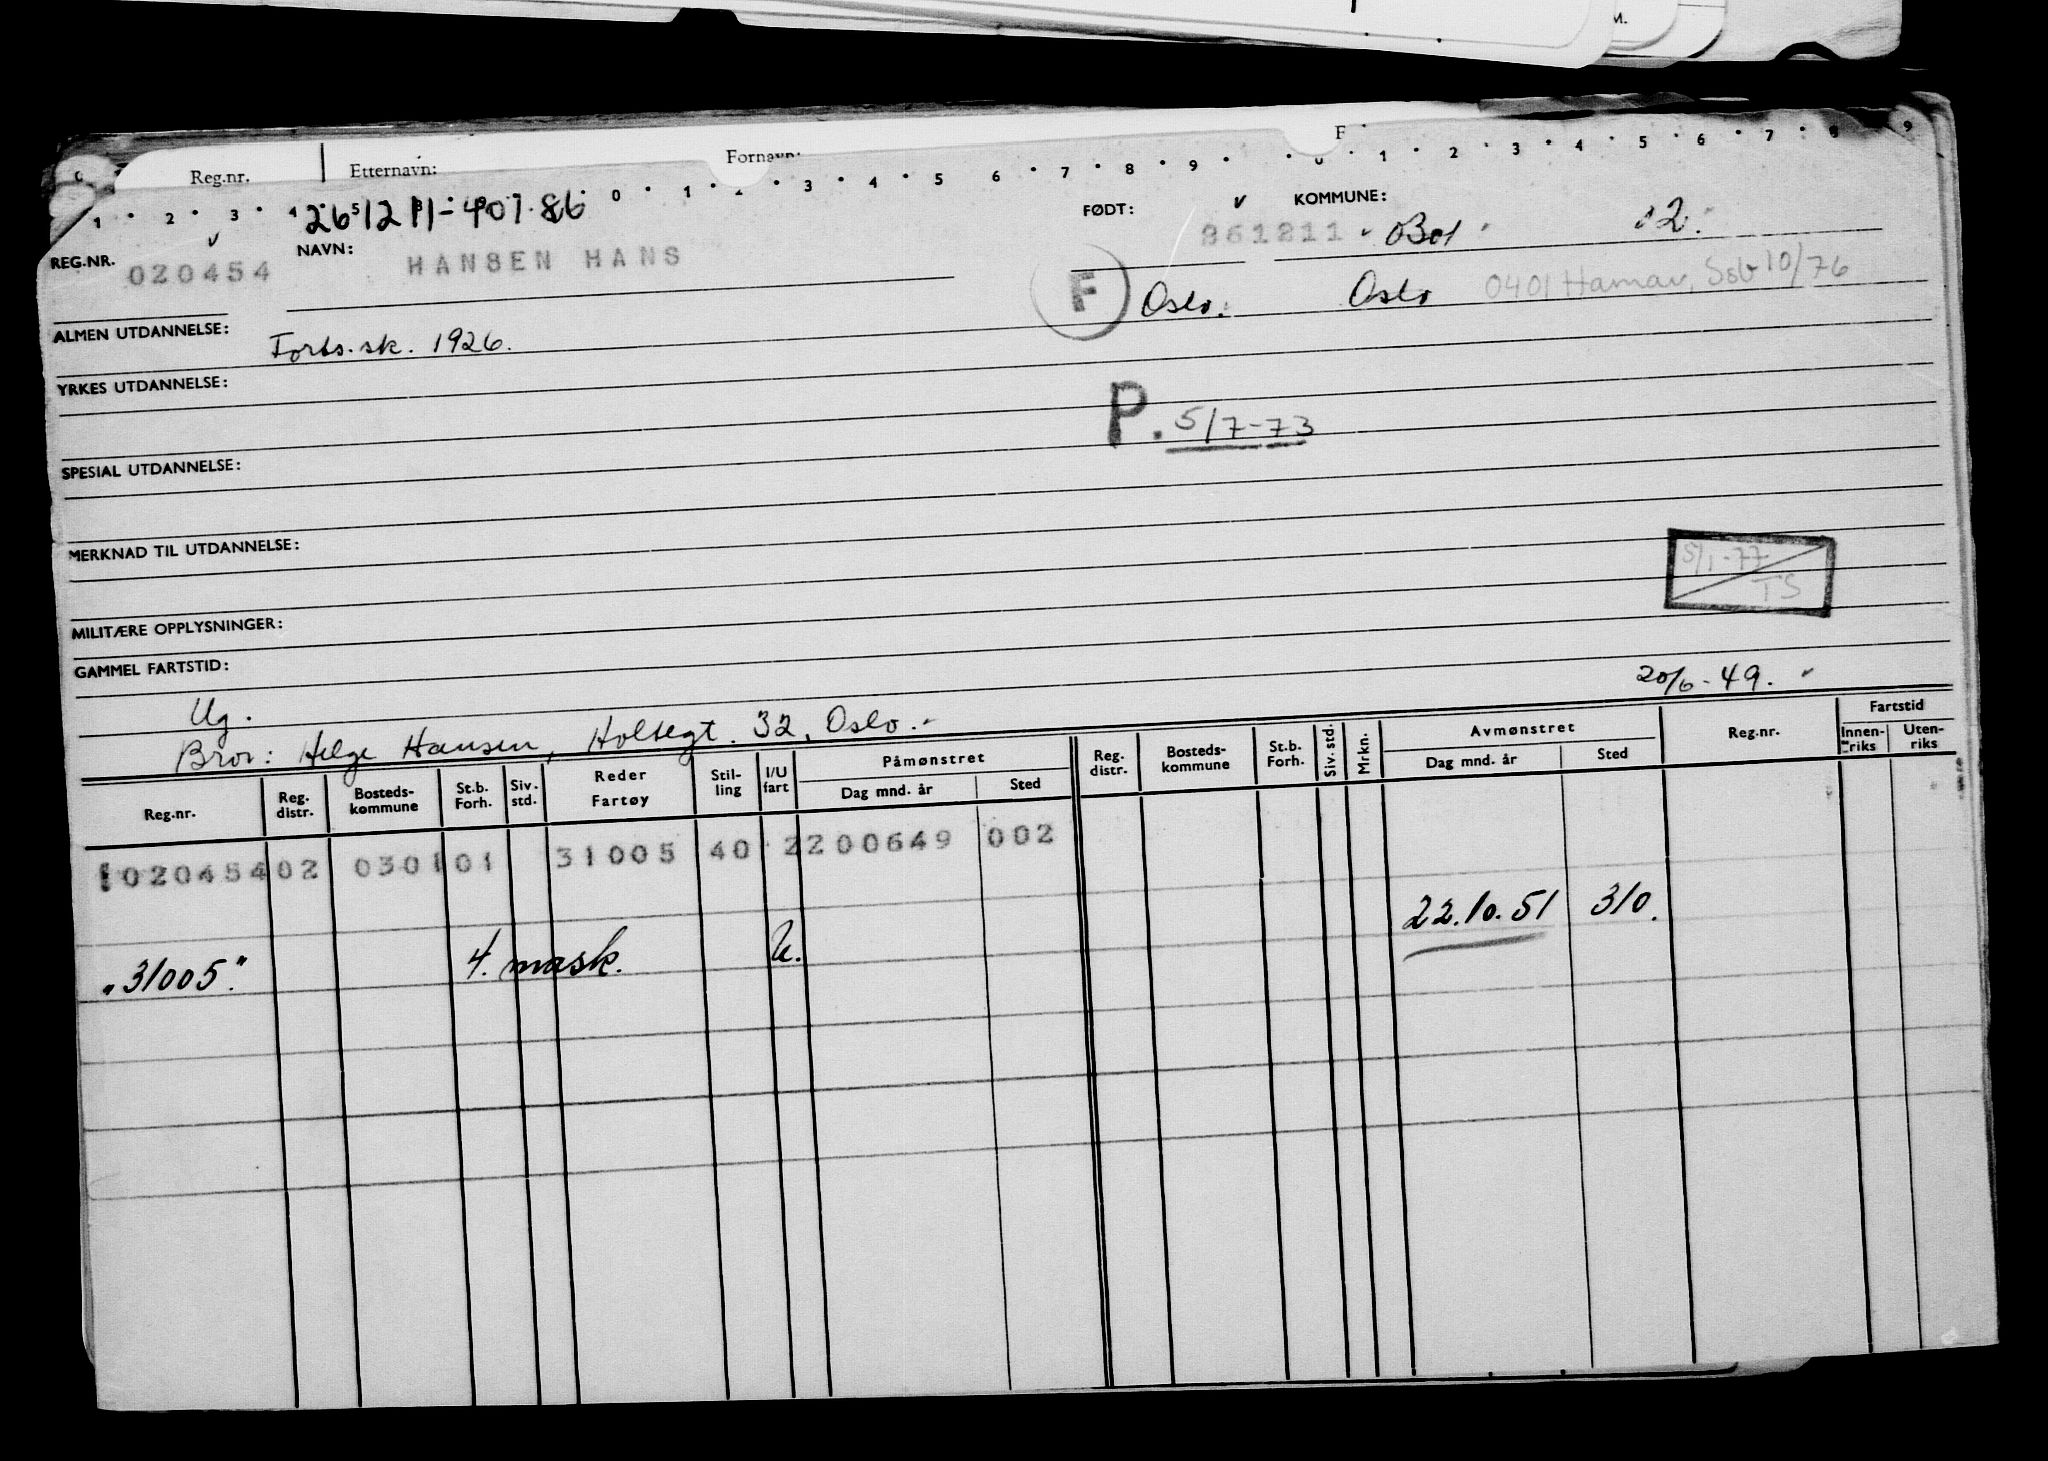 M.
Reg.nr. Etternavn: Fornavn: F
1 2 3 4 5 8 9 0 1 2 3 4 5 6 7 8 9 0 1 2 3 4 5 6 7 8 9
261211-407.86
REG.NR. 020454 NAVN: HANSEN HANS FØDT: 261211 KOMMUNE: 12.
F Oslo. Oslo 0401 Hamar, Ssb 10/76
ALMEN UTDANNELSE: Forts.sk. 1926.
YRKES UTDANNELSE:
P. 5/7-73
SPESIAL UTDANNELSE:
MERKNAD TIL UTDANNELSE:
5/1-77
TS
MILITÆRE OPPLYSNINGER:
GAMMEL FARTSTID:
Ug. 20/6-49.
Bror: Helge Hansen, Holtegt. 32, Oslo.-
Reg.nr. Reg. distr. Bosteds-kommune St.b. Forh. Siv. std. Reder Fartøy Stil-ling I/U fart Påmønstret Dag mnd. år Sted Reg. distr. Bosteds-kommune St.b. Forh. Siv. std. Mrkn. Avmønstret Dag mnd. år Sted Reg.nr. Fartstid Innen-riks Uten-riks
020454 02 0301 01 31005 40 2 200649 002
22.10.51 310.
"31005" 4. mask. U.